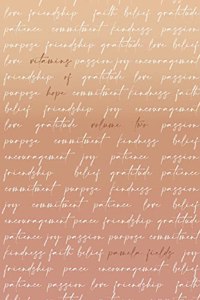 love friendship faith belief gratitude
patience commitment kindness passion
purpose friendship gratitude love belief
love vitamins passion joy encouragement
friendship of gratitude love passion
purpose hope commitment kindness faith
belief friendship joy encouragement
love gratitude volume two passion
purpose commitment kindness belief
encouragement joy patience passion
friendship belief gratitude patience
commitment purpose kindness passion
joy commitment patience love belief
encouragement peace friendship gratitude
patience joy passion commitment purpose
kindness faith belief pamela fields joy
friendship peace encouragement passion
commitment belief patience gratitude